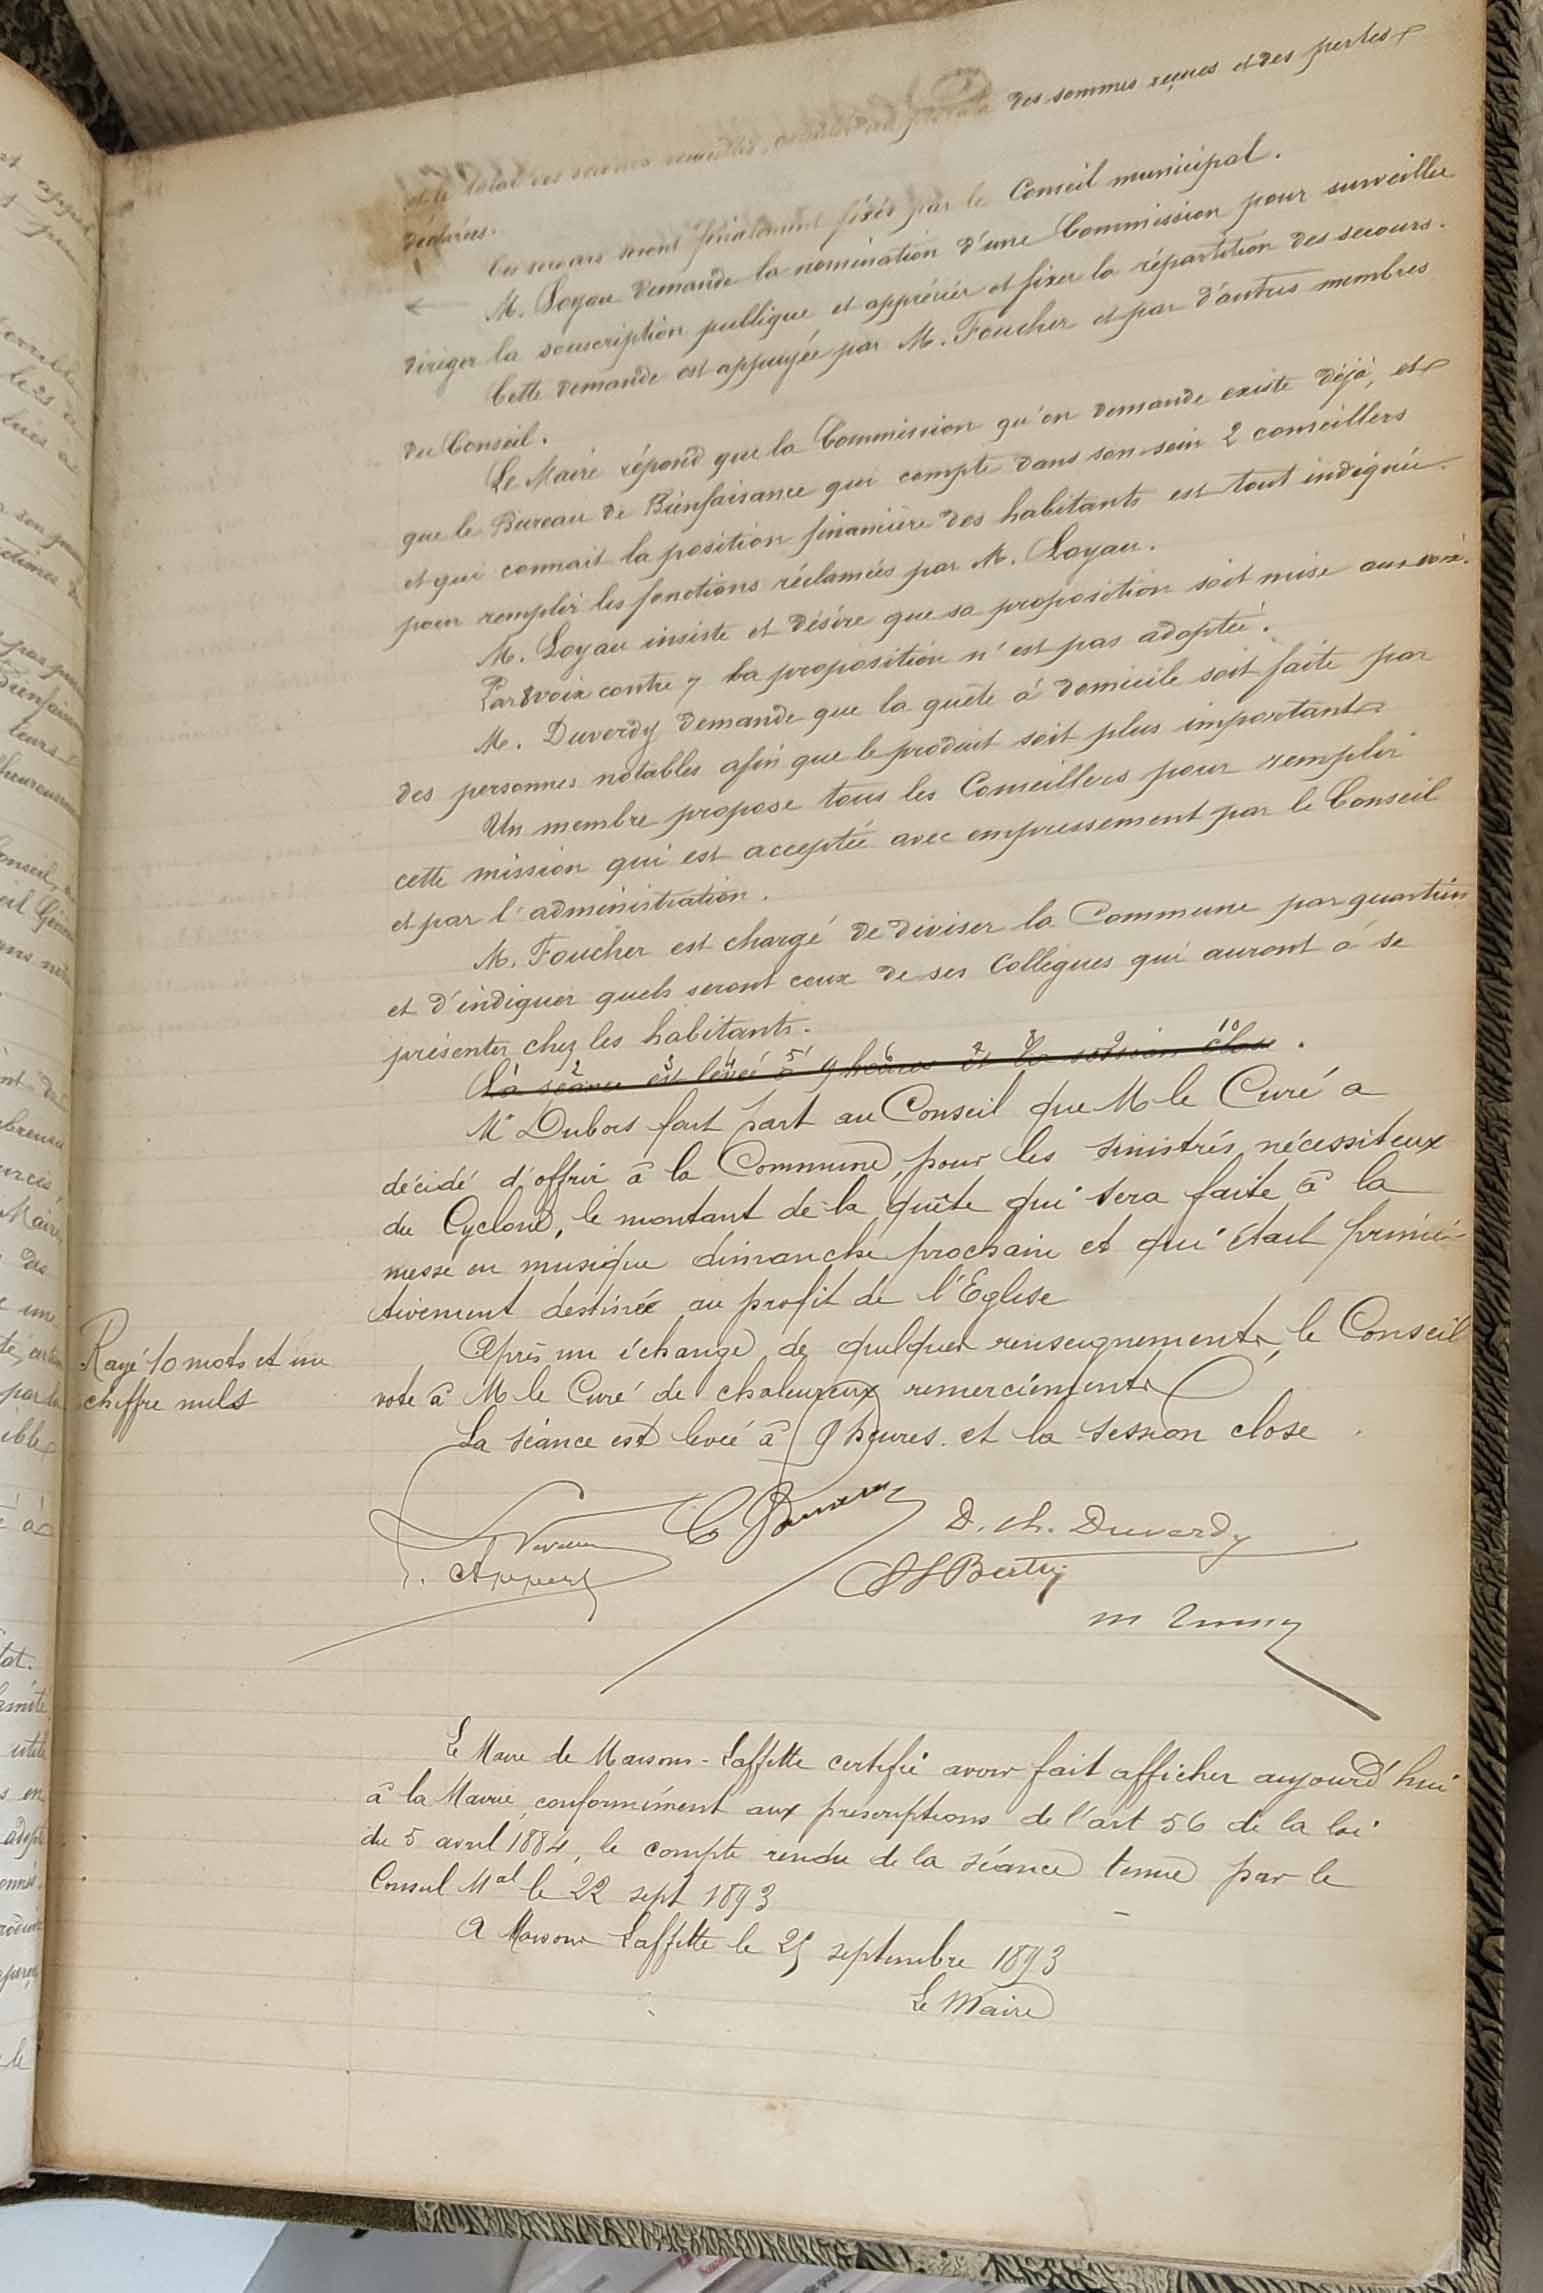 et le total des secours recueillis, des sommes reçues et des pertes
déclarées.
Ces secours seront finalement fixés par le Conseil municipal.
M. Loyau demande la nomination d'une Commission pour surveiller
diriger la souscription publique et apprécier et fixer la répartition des secours.
Cette demande est appuyée par M. Foucher et par d'autres membres
du Conseil.
Le Maire répond que la Commission qu'on demande existe déjà, et
que le Bureau de Bienfaisance qui compte dans son sein 2 conseillers
et qui connait la position financière des habitants est tout indiquée
pour remplir les fonctions réclamées par M. Loyau.
M. Loyau insiste et désire que sa proposition soit mise aux voix.
Par 8 voix contre 7 la proposition n'est pas adoptée.
M. Duverdy demande que la quête à domicile soit faite par
des personnes notables afin que le produit soit plus important
Un membre propose tous les Conseillers pour remplir
cette mission qui est acceptée avec empressement par le Conseil
et par l'administration.
M. Foucher est chargé de diviser la Commune par quartier
et d'indiquer quels seront ceux de ses Collègues qui auront à se
présenter chez les habitants.
La séance est levée à 9 heures et la session close.
Mr Dubois fait part au Conseil que M le Curé a
décidé d'offrir à la Commune, pour les sinistrés nécessiteux
du Cyclone, le montant de la quête qui sera faite à la
messe en musique dimanche prochain et qui était primi-
tivement destinée au profit de l'Eglise
Après un échange de quelques renseignements le Conseil
vote à M le Curé de chaleureux remerciements
La séance est levée à 9 heures et la session close
Rayé 10 mots et un
chiffre nuls
D. Ch. Duverdy
Le Maire de Maisons-Laffitte certifie avoir fait afficher aujourd'hui
à la Mairie, conformément aux prescriptions de l'art 56 de la loi
du 5 avril 1884, le compte rendu de la séance tenue par le
Conseil Mal le 22 sept 1893
A Maisons Laffitte le 25 septembre 1893
Le Maire